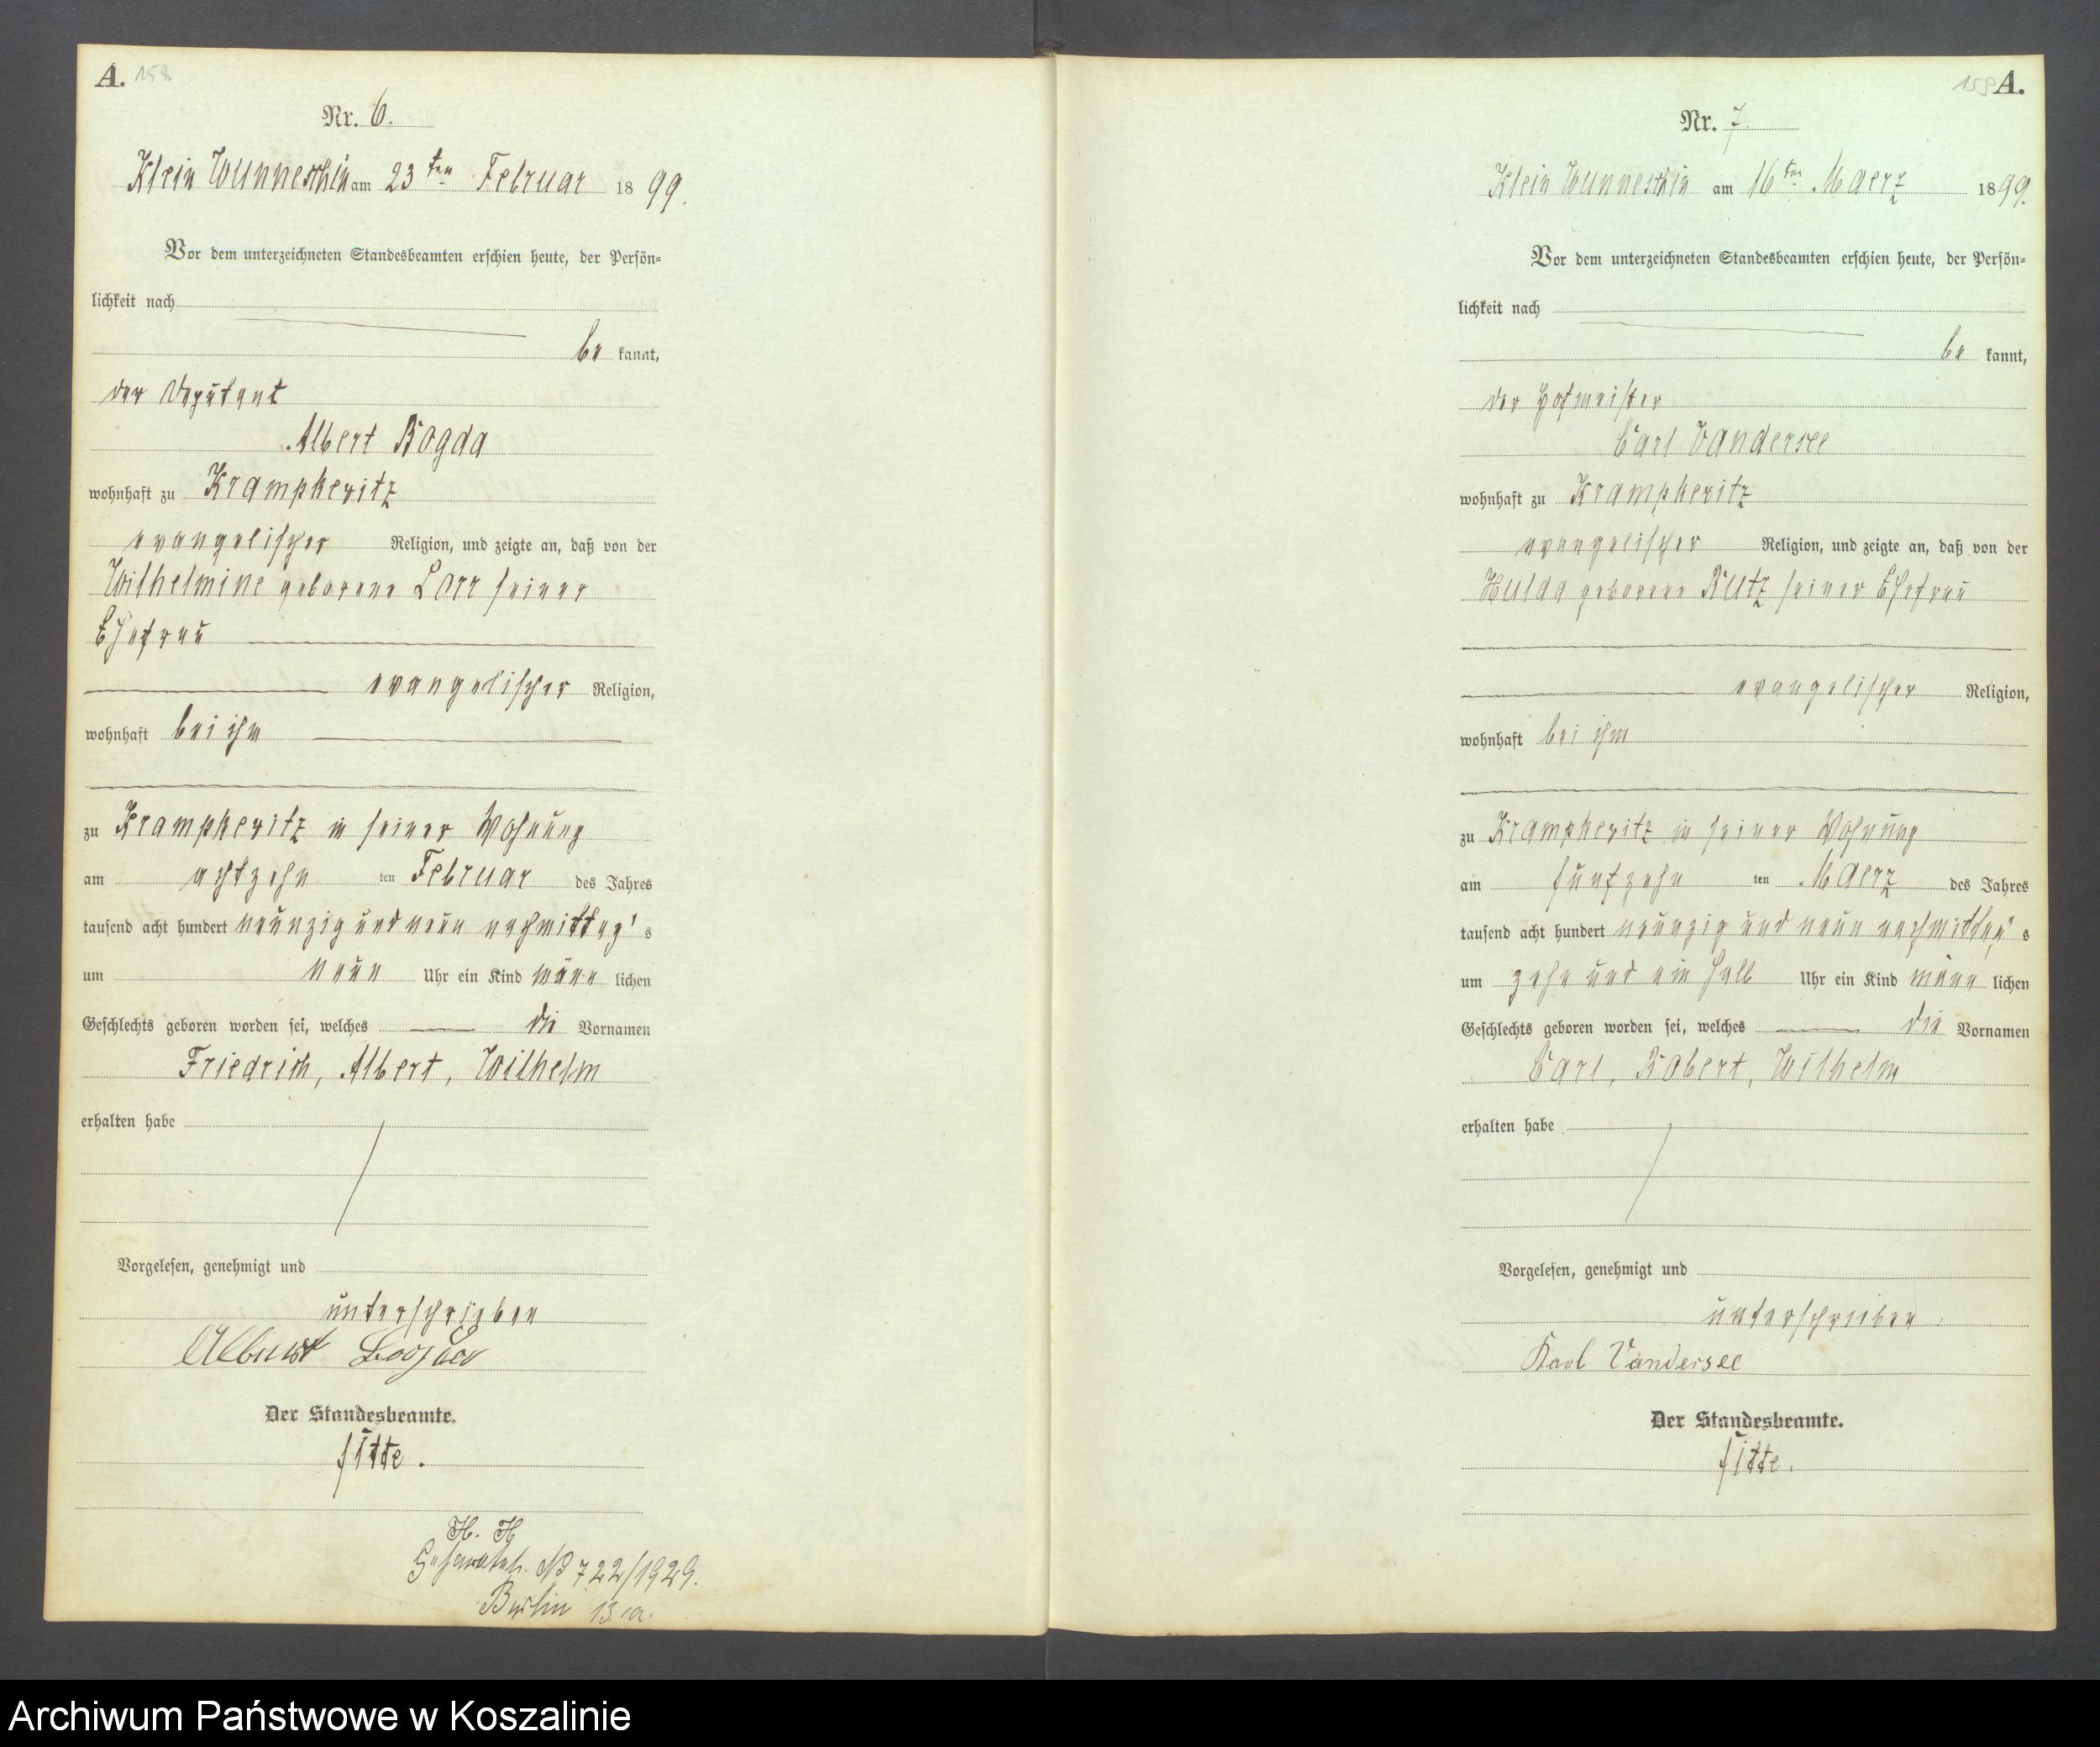 A. 158
Nr. 6.
Klein Wunneschin am 23 ten Februar 1899.
Vor dem unterzeichneten Standesbeamten erschien heute, der Persön=
lichkeit nach
be kannt,
der Deputant
Albert Rogda
wohnhaft zu Krampkewitz
evangelischer Religion, und zeigte an, daß von der
Wilhelmine geborene Lorr seiner
Ehefrau
evangelischer Religion,
wohnhaft bei ihm
zu Krampkewitz in seiner Wohnung
am achtzehn ten Februar des Jahres
tausend acht hundert neunzig und neun nachmittag's
um neun Uhr ein Kind männ lichen
Geschlechts geboren worden sei, welches die Vornamen
Friedrich, Albert, Wilhelm
erhalten habe
Vorgelesen, genehmigt und
unterschrieben
Albert
Der Standesbeamte.
H. H.
No 722/1929.
Berlin 13.a.
159 A.
Nr. 7.
Klein Wunneschin am 16 ten Maerz 1899.
Vor dem unterzeichneten Standesbeamten erschien heute, der Persön=
lichkeit nach
be kannt,
der Hofmeister
Carl Vandersee
wohnhaft zu Krampkewitz
evangelischer Religion, und zeigte an, daß von der
Hulda geborene Rutz seiner Ehefrau
evangelischer Religion,
wohnhaft bei ihm
zu Krampkewitz in seiner Wohnung
am fünfzehn ten Maerz des Jahres
tausend acht hundert neunzig und neun nachmittag's
um zehn und ein halb Uhr ein Kind männ lichen
Geschlechts geboren worden sei, welches die Vornamen
Carl, Robert, Wilhelm
erhalten habe
Vorgelesen, genehmigt und
unterschrieben.
Karl Vandersee
Der Standesbeamte.
Archiwum Państwowe w Koszalinie